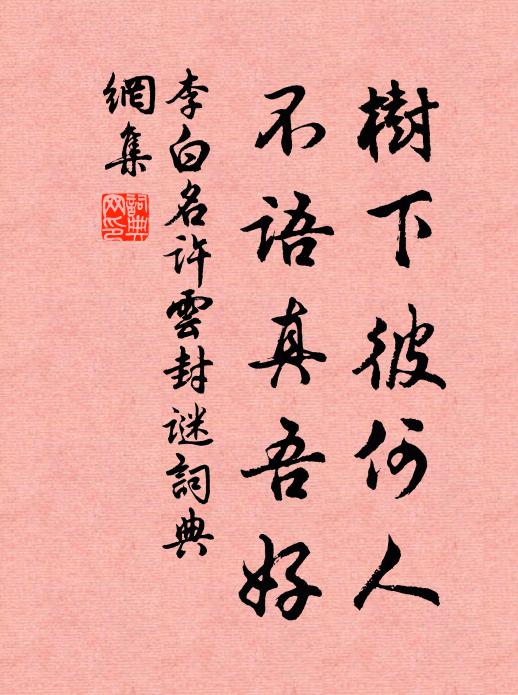 樹下彼何人
不語真吾好
李白名許雲封謎詞典
網集
詞典
网印